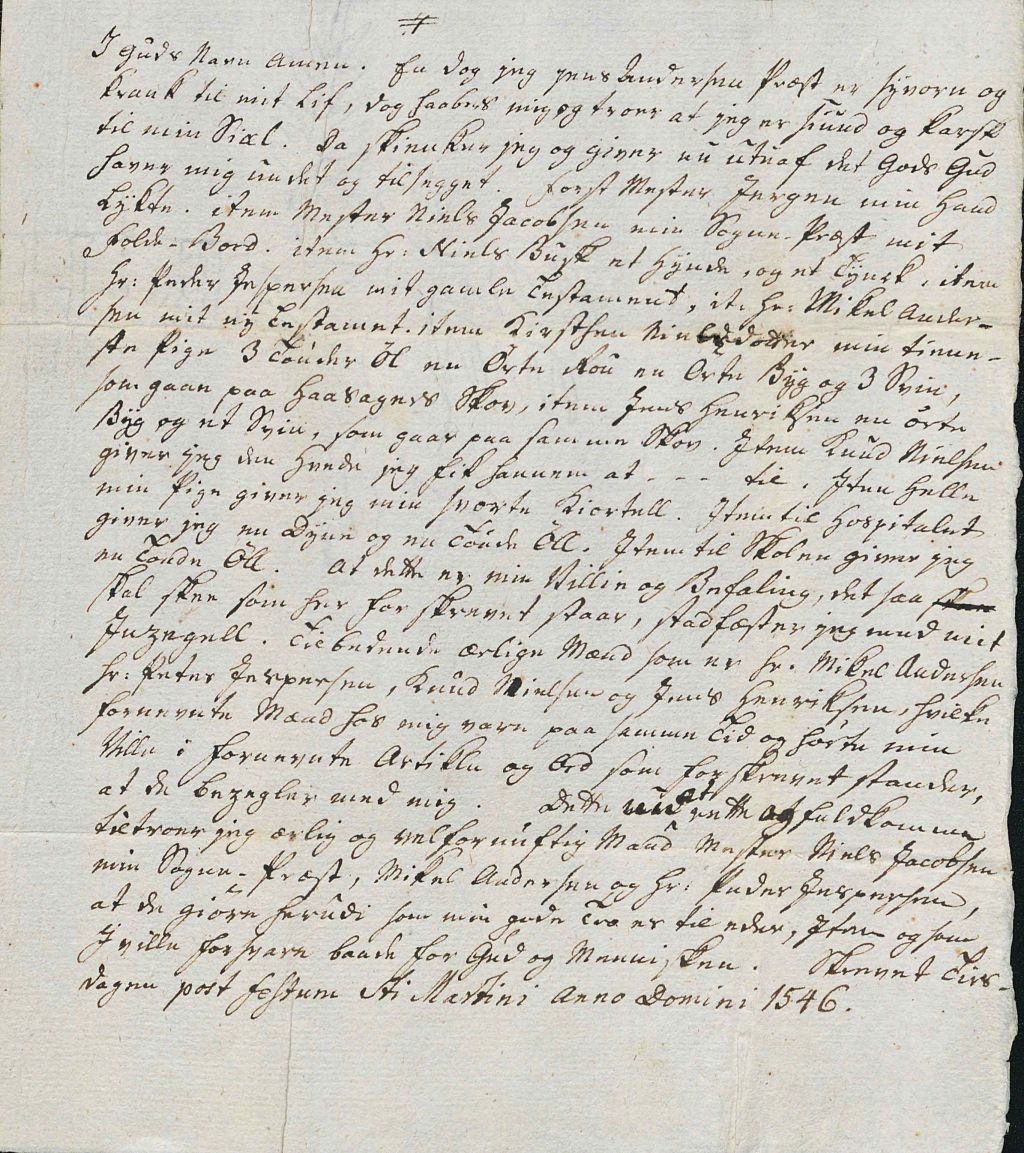 I Guds Navn Amen. En dog jeg Jens Andersen Præst er syvorn og
krank til mit Lif, dog haabes mig og troer at jeg er siund og karsk
til min Siæl. Da skienker jeg og giver nu utuaf det Gods Gud
haver mig undet og tilsegget. Først Mester Jergen min Hand
Lykte. item Mester Niels Jacobsen min Sogne-Præst mit
Folde-Bord. item Hr: Niels Busk et Hynde, og et Tyurk, item
Hr: Peder Jespersen mit gamle Testament, it. Hr: Mikel Ander-
sen mit ny Testamet. item Kirsthen Nielsdotter min tiene-
ste Pige 3 Tønder Öl en Örte Rou en Örte Byg og 3 Svin,
som gaan paa Haasagers Skov, item Jens Henriksen en örte
Byg og et Svin, som gaar paa samme Skov. Item Knud Nielsen
giver jeg den Hvede jeg fik hannem at - - - til. Item Helle
min Pige giver jeg min svorte Kiortell. Item til Hospitalet
giver jeg en Dyne og en Tönde Öll. Item til Skolen giver jeg
en Tonde Öll. At dette er min Villie og Befaling, det saa
skal skee som her for skrevet staar, stadfæster jeg med mit
Inzegell. Tilbedende ærlige Mænd som er Hr. Mikel Andersen
Hr: Peter Jespersen, Knud Nielsen og Jens Henriksen, hvilke
fornevnte Mænd hos mig vare paa samme Tid og hörte min
Ville i fornevnte Artikle og Ord som forskrevet stander,
at de bezegler med mig. Dette at rette og fuldkomme
tiltroer jeg ærlig og velfornuftig Mand Mester Niels Jacobsen
min Sogne-Præst, Mikel Andersen og Hr: Peder Jespersen,
at de giöre herudi som min gode Tro er til eder, Item og som
I ville forsvare baade for Gud og Mennisken. Skrevet Tirs-
dagen post festum Sti Martini Anno Domini 1546.